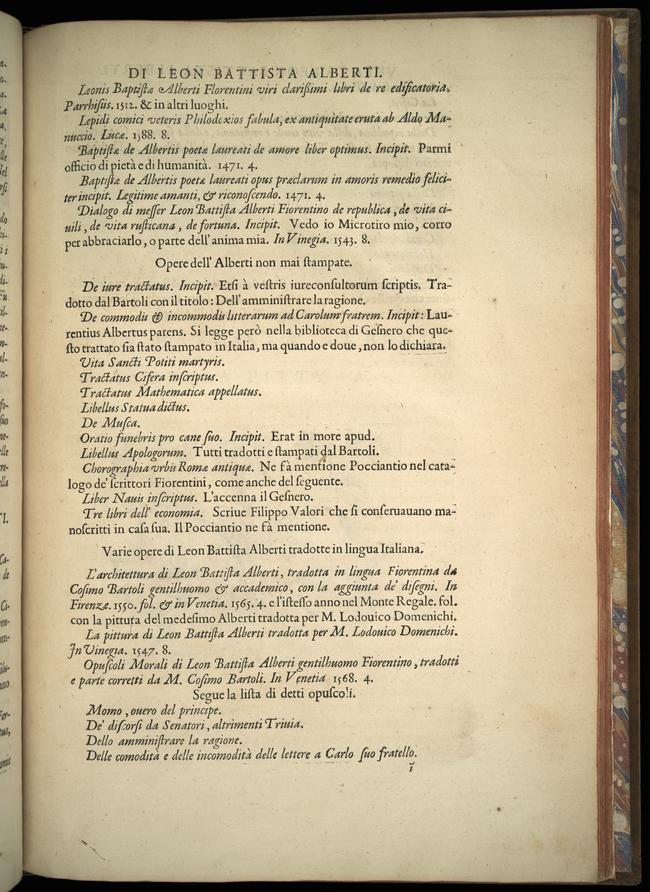 DI LEON BATTISTA ALBERTI.
Leonis Baptistæ Alberti Florentini viri clarißimi libri de re edificatoria,
Parrhisiis. 1512. & in altri luoghi.
Lepidi comici veteris Philodoxios fabula, ex antiquitate eruta ab Aldo Ma-
nuccio. Lucæ. 1588. 8.
Baptistæ de Albertis poetæ laureati de amore liber optimus. Incipit. Parmi
officio di pietà e di humanità. 1471. 4.
Baptistæ de Albertis poetæ laureati opus præclarum in amoris remedio felici-
ter incipit. Legitime amanti, & riconoscendo. 1471. 4.
Dialogo di messer Leon Battista Alberti Fiorentino de republica, de vita ci-
uili, de vita rusticana, de fortuna. Incipit. Vedo io Microtiro mio, corro
per abbraciarlo, o parte dell'anima mia. In Vinegia. 1543. 8.
Opere dell'Alberti non mai stampate.
De iure tractatus. Incipit. Etsi à vestris iureconsultorum scriptis. Tra-
dotto dal Bartoli con il titolo: Dell'amministrare la ragione.
De commodis & incommodis litterarum ad Carolum fratrem. Incipit: Lau-
rentius Albertus parens. Si legge però nella biblioteca di Gesnero che que-
sto trattato sia stato stampato in Italia, ma quando e doue, non lo dichiara.
Vita Sancti Potiti martyris.
Tractatus Cifera inscriptus.
Tractatus Mathematica appellatus.
Libellus Statua dictus.
De Musca.
Oratio funebris pro cane suo. Incipit. Erat in more apud.
Libellus Apologorum. Tutti tradotti e stampati dal Bartoli.
Chorographia vrbis Romæ antiquæ. Ne fà mentione Pocciantio nel cata-
logo de' scrittori Fiorentini, come anche del seguente.
Liber Nauis inscriptus. L'accenna il Gesnero.
Tre libri dell'economia. Scriue Filippo Valori che si conseruauano ma-
noscritti in casa sua. Il Pocciantio ne fà mentione.
Varie opere di Leon Battista Alberti tradotte in lingua Italiana.
L'architettura di Leon Battista Alberti, tradotta in lingua Fiorentina da
Cosimo Bartoli gentilhuomo & accademico, con la aggiunta de' disegni. In
Firenze. 1550. fol. & in Venetia. 1565. 4. e l'istesso anno nel Monte Regale. fol.
con la pittura del medesimo Alberti tradotta per M. Lodouico Domenichi.
La pittura di Leon Battista Alberti tradotta per M. Lodouico Domenichi.
In Vinegia. 1547. 8.
Opuscoli Morali di Leon Battista Alberti gentilhuomo Fiorentino, tradotti
e parte corretti da M. Cosimo Bartoli. In Venetia 1568. 4.
Segue la lista di detti opuscoli.
Momo, ouero del principe.
De' discorsi da Senatori, altrimenti Triuia.
Dello amministrare la ragione.
Delle comodità e delle incomodità delle lettere a Carlo suo fratello.
ī